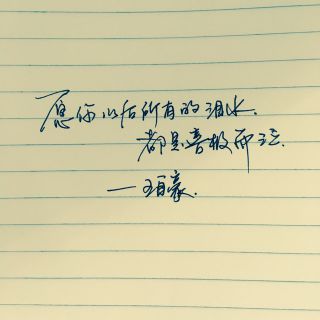 愿你以后所有的泪水.
都是喜极而泣.